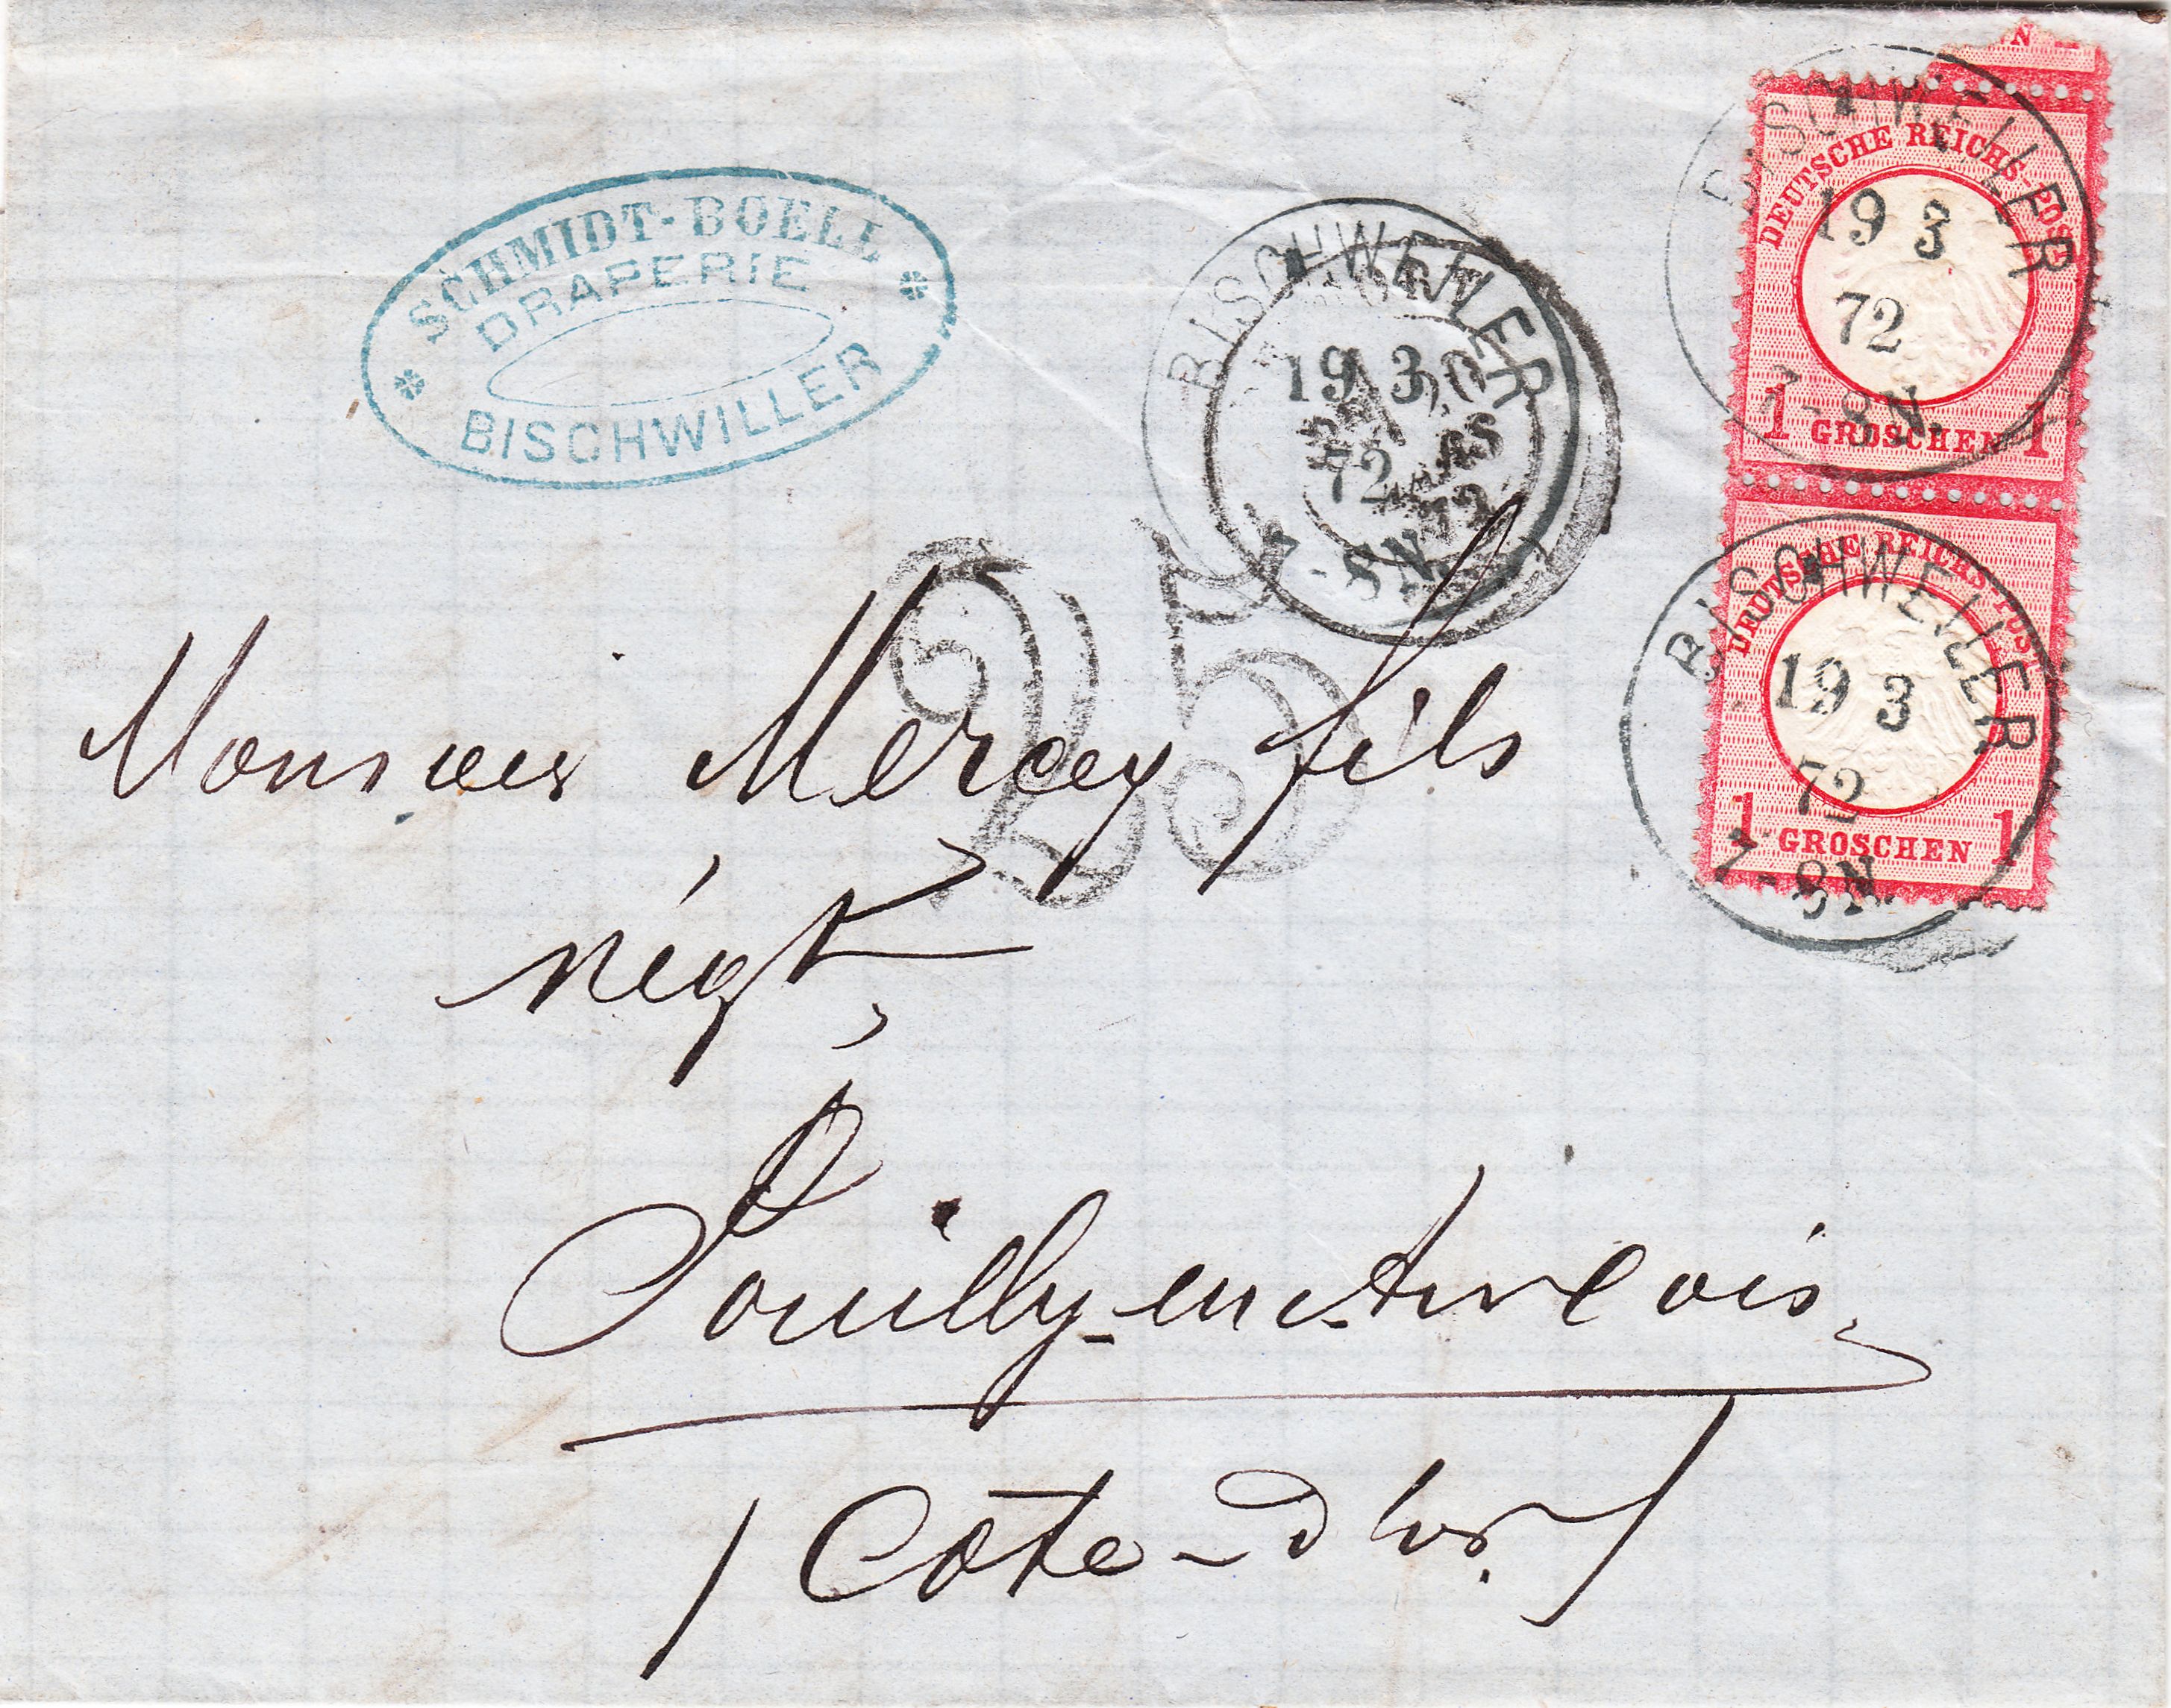 SCHMIDT-BOELL
DRAPERIE
BISCHWILLER
BISCHWEILER
19 3
72
-8N.
MARS
72
DEUTSCHE REICHS-POST
BISCHWEILER
19 3
72
7-8N.
1 GROSCHEN 1
DEUTSCHE REICHS-POST
BISCHWEILER
19 3
72
1 GROSCHEN 1
7-8N.
25
Monsieur Mercey fils
négt
Pouilly-en-Auxois
(Côte-d'or.)